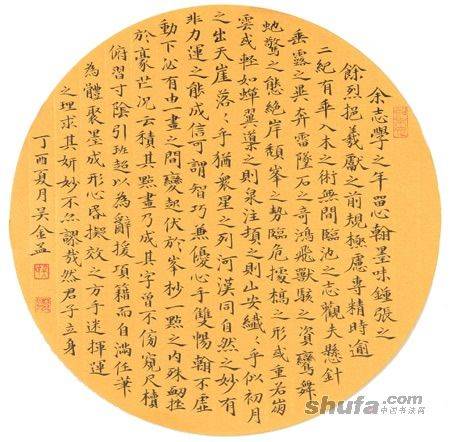 余志學之年留心翰墨味鍾張之
餘烈挹羲獻之前規極慮專精時逾
二紀有乖入木之術無間臨池之志觀夫懸針
垂露之異奔雷墜石之奇鴻飛獸駭之資鸞舞
蛇驚之態絕岸頹峯之勢臨危據槁之形或重若崩
雲或輕如蟬翼導之則泉注頓之則山安纖〻乎似初月
之出天崖落〻乎猶衆星之列河漢同自然之妙有
非力運之能成信可謂智巧兼優心手雙暢翰不虛
動下必有由一畫之間變起伏於峯杪一點之內殊衄挫
於豪芒况云積其點畫乃成其字曾不傍窺尺牘
俯習寸陰引班超以為辭援項籍而自滿任筆
為體聚墨成形心昏擬效之方手迷揮運
之理求其妍妙不亦謬哉然君子立身
丁酉夏月吴金孟
shufa.com
中国书法网